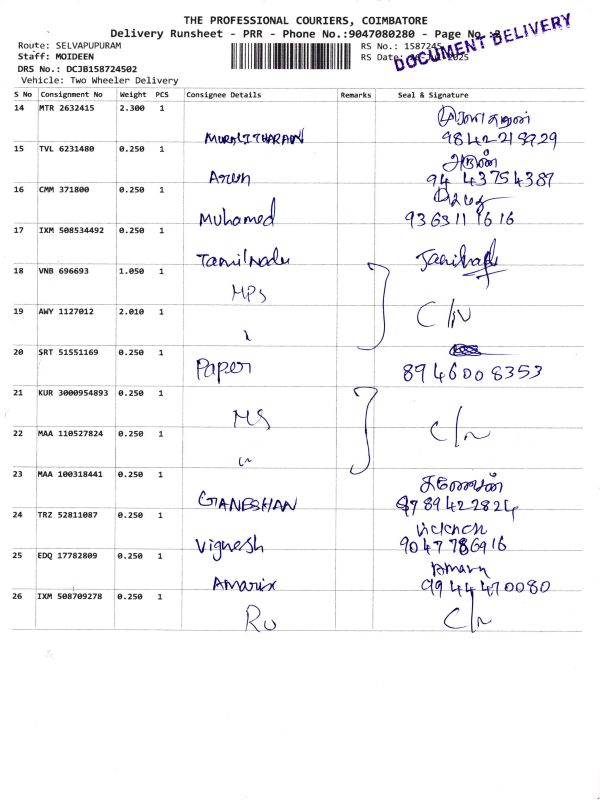 THE PROFESSIONAL COURIERS, COIMBATORE
Delivery Runsheet - PRR - Phone No.:9047080280 - Page No.:
DOCUMENT DELIVERY
Route: SELVAPUPURAM RS No.: 1587245
Staff: MOIDEEN RS Date: 2025
DRS No.: DCJB158724502
Vehicle: Two Wheeler Delivery
S No Consignment No Weight PCS Consignee Details Remarks Seal & Signature
14 MTR 2632415 2.300 1
MURALITHARAN 9842218729
15 TVL 6231480 0.250 1 அருண்
Arun 94 43754387
16 CMM 371800 0.250 1
Muhamed 936311 1616
17 IXM 508534492 0.250 1
Tamilnadu Tamilnadu
18 VNB 696693 1.050 1
MPS
19 AWY 1127012 2.010 1 C/N
20 SRT 51551169 0.250 1
Paper 8946008353
21 KUR 3000954893 0.250 1
MS
22 MAA 110527824 0.250 1 C/n
23 MAA 100318441 0.250 1
கணேஷன்
GANESHAN 9789422824
24 TRZ 52811087 0.250 1
Vignesh 9047786916
25 EDQ 17782809 0.250 1
Amarix 9944470080
26 IXM 508709278 0.250 1
Ru C/n